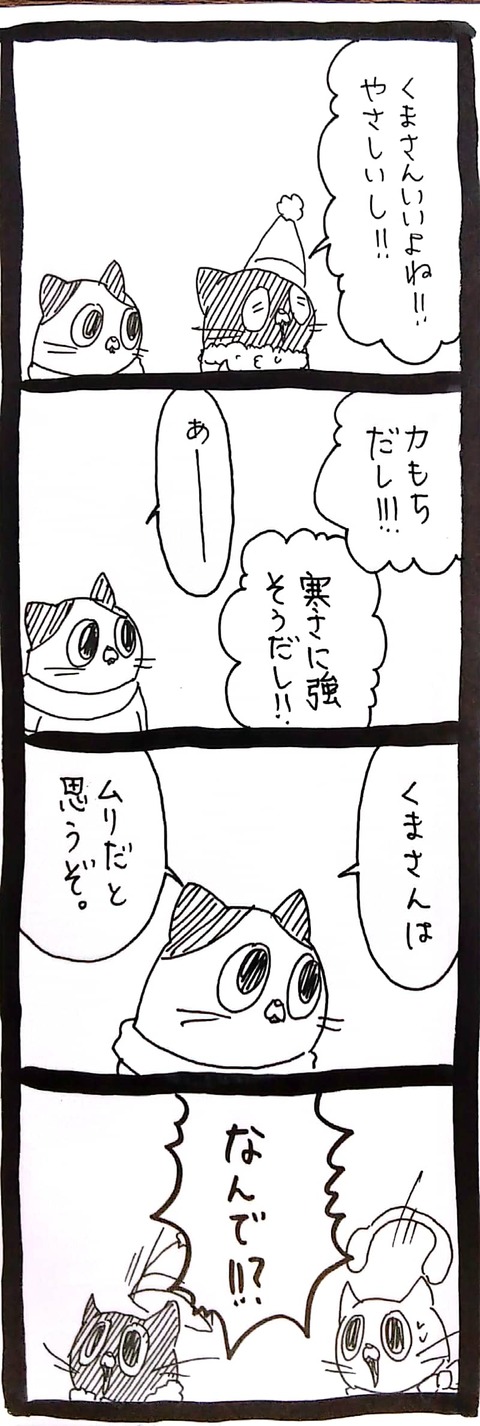 くまさんいいよね!!
やさしいし!!
力もち
だし!!!
寒さに強
そうだし!!
あー
くまさんは
ムリだと
思うぞ。
なんで!!?